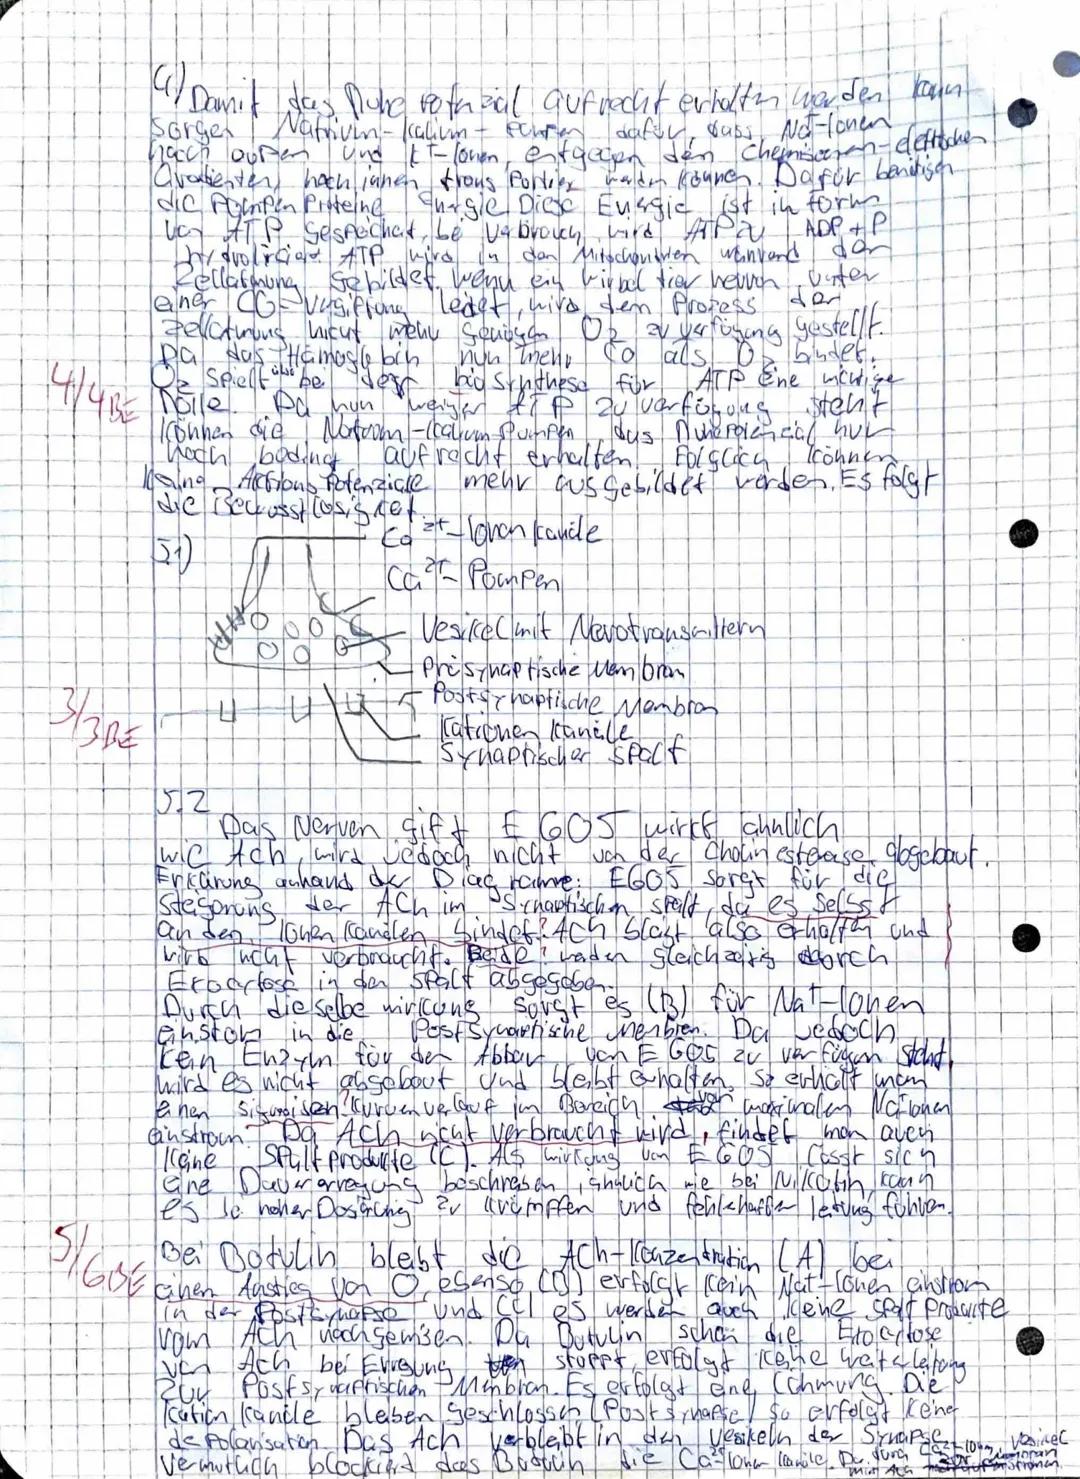 4) Damit das Ruhepotenzial aufrecht erhalten werden kann
sorgen Natrium-Kalium-Pumpen dafür, dass Na+-Ionen
nach außen und K+-Ionen, entgegen den chemischen-elektrischen
Gradienten, nach innen transportiert werden können. Dafür benötigen
die Pumpen Proteine Energie. Diese Energie ist in form
von ATP gespeichert, bei Verbrauch wird ATP zu ADP + P
hydrolisiert. ATP wird in den Mitochondrien während der
Zellatmung gebildet. Wenn ein Wirbeltier unter
einer CO-Vergiftung leidet, wird dem Prozess der
Zellatmung nicht mehr genügen O2 zu verfügung gestellt.
Da das Hämoglobin nun mehr CO als O2 bindet.
O2 spielt bei der biosynthese für ATP eine wichtige
Rolle. Da nun weniger ATP zu verfügung steht
können die Natrium-Kalium Pumpen das Ruhepotenzial nur
noch bedingt aufrecht erhalten. Folglich können
keine Aktions Potenziale mehr ausgebildet werden. Es folgt
die Bewusstlosigkeit.
4/4BE
5.1)
Ca2+-Ionenkanäle
Ca2+-Pumpen
Vesikel mit Neurotransmittern
Präsynaptische Membran
Postsynaptische Membran
Kationen Kanäle
Synaptischer Spalt
3/3BE
5.2
Das Nerven gift E 605 wirkt ähnlich
wie ACh, wird jedoch nicht von der Cholinesterase abgebaut.
Erklärung anhand der Diagramme: E605 sorgt für die
Steigerung der ACh im Synaptischen Spalt, da es selbst
an den Ionen Kanälen bindet? ACh bleibt also erhalten und
wird nicht verbraucht. Beide? werden gleichzeitig durch
Exocytose in den Spalt abgegeben.
Durch dieselbe wirkung sorgt es (B) für Na+-Ionen
einstrom in die Postsynaptische Membran. Da jedoch
kein Enzym für den Abbau von E 605 zu verfügen steht,
wird es nicht abgebaut und bleibt erhalten. So erhält man
einen Kurvenverlauf im Bereich von maximalen Na+Ionen
einstrom. Da ACh nicht verbraucht wird, findet man auch
keine Spaltprodukte (C). Als wirkung von E 605 lässt sich
eine Dauererregung beschreiben, ähnlich wie bei Nikotin, kann
es je hoher Dosierung zu Krämpfen und fehlerhafter leitung führen.
5/6BE
Bei Botulin bleibt die ACh-Konzentration (A) bei
einen Anstieg von 0, ebenso (B) erfolgt kein Na+-Ionen einstrom
in der Postsynapse und (C) es werden auch keine Spaltprodukte
vom ACh nachgewisen. Da Botulin schon die Exocytose
von ACh bei Erregung stoppt, erfolgt keine weiterleitung
zur Postsynaptischen Membran. Es erfolgt eine Lähmung. Die
Kation Kanäle bleiben geschlossen (Postsynapse) so erfolgt keine
depolarisation. Das Ach verbleibt in den Vesikeln der Synapse.
Vermutlich blockiert das Botulin die Ca2+-Ionen Kanäle. Da durch Ca2+-Ionen Vesikel
mit ACh